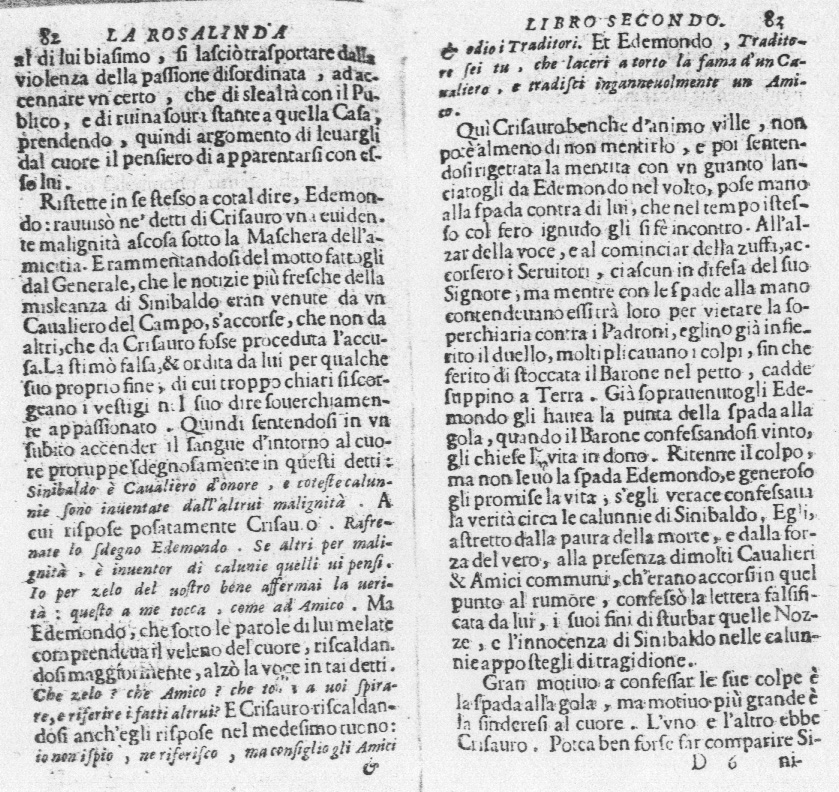 82 LA ROSALINDA
al di lui biasimo , si lasciò trasportare dalla
violenza della passione disordinata , ad ac-
cennare vn certo , che di slealtà con il Pu-
blico, e di ruina soura stante a quella Casa,
prendendo , quindi argomento di leuargli
dal cuore il pensiero di apparentarsi con es-
so lui.
Ristette in se stesso a cotal dire, Edemon-
do: rauuisò ne' detti di Crisauro vna euiden-
te malignità ascosa sotto la Maschera dell'a-
micitia. E rammentandosi del motto fattogli
dal Generale, che le notizie più fresche della
misleanza di Sinibaldo eran venute da vn
Caualiero del Campo, s'accorse, che non da
altri, che da Crisauro fosse proceduta l'accu-
sa. La stimò falsa, & ordita da lui per qualche
suo proprio fine, di cui troppo chiari si scor-
geano i vestigi nel suo dire souerchiamen-
te appassionato . Quindi sentendosi in vn
subito accender il sangue d'intorno al cuo-
re proruppe sdegnosamente in questi detti:
Sinibaldo è Caualiero d'onore , e coteste calun-
nie sono inuentate dall'altrui malignità . A
cui rispose posatamente Crisauro . Rafre-
nate lo sdegno Edemondo . Se altri per mali-
gnità , è inuentor di calunie quelli ui pensi.
Io per zelo del uostro bene affermai la ueri-
tà : questo a me tocca , come ad Amico . Ma
Edemondo, che sotto le parole di lui melate
comprendeua il veleno del cuore, riscaldan-
dosi maggiormente, alzò la voce in tai detti.
Che zelo ? che Amico ? che a uoi spira-
re, e riferire i fatti altrui? E Crisauro riscaldan-
dosi anch'egli rispose nel medesimo tuono:
io non ispio , ne riferisco , ma consiglio gli Amici
&
LIBRO SECONDO. 83
& odio i Traditori. Et Edemondo , Tradito-
re sei tu , che laceri a torto la fama d'un Ca-
ualiero , e tradisci inganneuolmente un Ami-
co.
Quì Crisauro benche d'animo ville , non
potè almeno di non mentirlo , e poi senten-
dosi rigettata la mentita con vn guanto lan-
ciatogli da Edemondo nel volto, pose mano
alla spada contra di lui, che nel tempo istes-
so col fero ignudo gli si fè incontro . All'al-
zar della voce, e al cominciar della zuffa, ac-
corsero i Seruitori , ciascun in difesa del suo
Signore; ma mentre con le spade alla mano
contendeuano essi trà loro per vietare la so-
perchiaria contra i Padroni, eglino già infie-
rito il duello, moltiplicauano i colpi, sin che
ferito di stoccata il Barone nel petto, cadde
suppino a Terra . Già soprauenutogli Ede-
mondo gli hauea la punta della spada alla
gola, quando il Barone confessandosi vinto,
gli chiese la vita in dono. Ritenne il colpo,
ma non leuò la spada Edemondo, e generoso
gli promise la vita, s'egli verace confessaua
la verità circa le calunnie di Sinibaldo, Egli,
astretto dalla paura della morte, e dalla for-
za del vero, alla presenza di molti Caualieri
& Amici communi, ch'erano accorsi in quel
punto al rumore, confessò la lettera falsifi-
cata da lui, i suoi fini di sturbar quelle Noz-
ze , e l'innocenza di Sinibaldo nelle calun-
nie appostegli di tragidione.
Gran motiuo a confessar le sue colpe è
la spada alla gola, ma motiuo più grande è
la sinderesi al cuore . L'vno e l'altro ebbe
Crisauro . Potea ben forse far comparire Si-
D 6 ni-